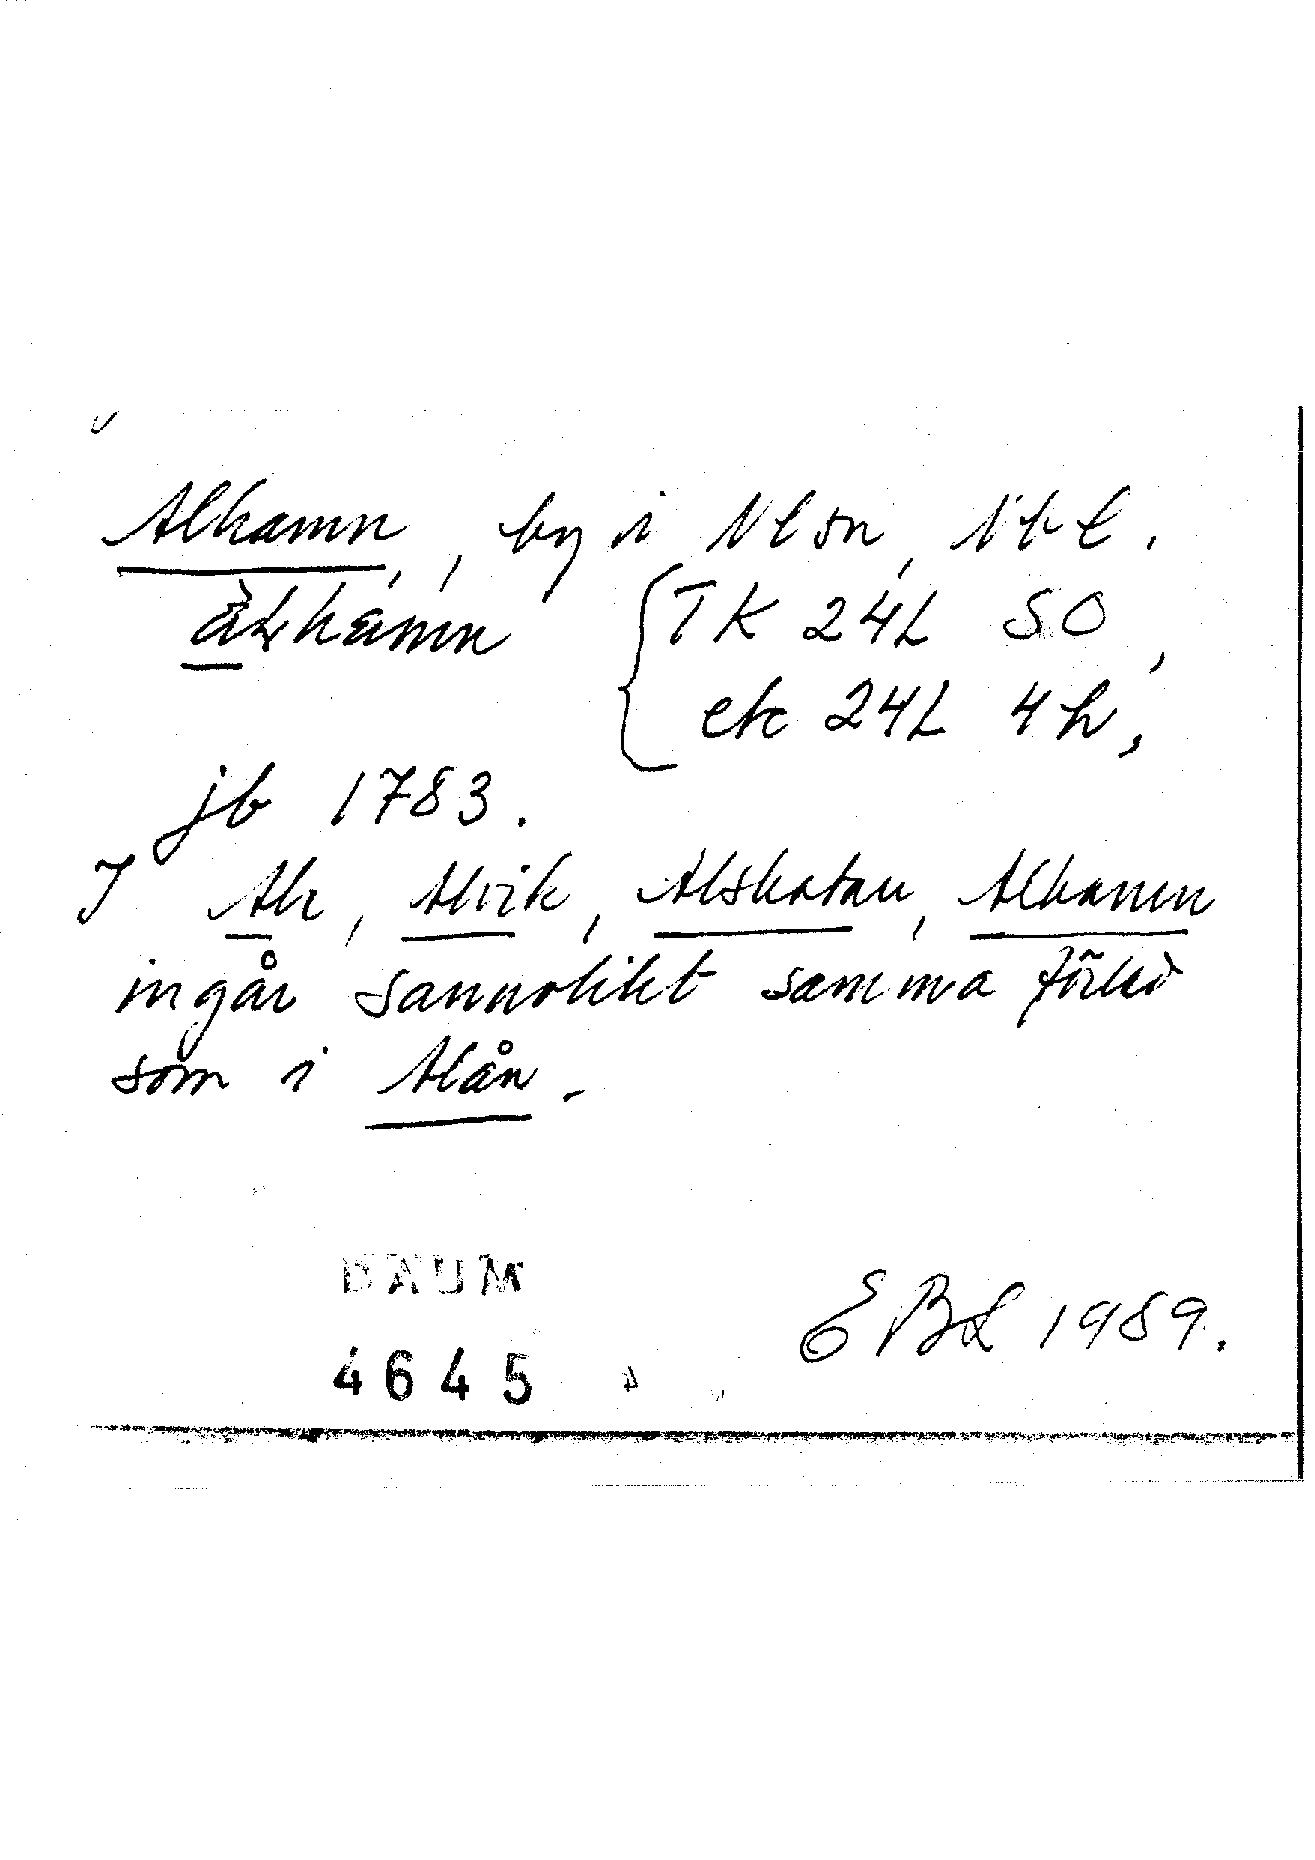 Alhamn, by i Nlsn, Nbl.
àlhàmn {TK 24L SO,
ek 24L 4h,
jb 1783.
I Alr, Alvik, Alskatan, Alhamn
ingår sannolikt samma förled
som i Alån.
DAUM
4645
EBL 1989.